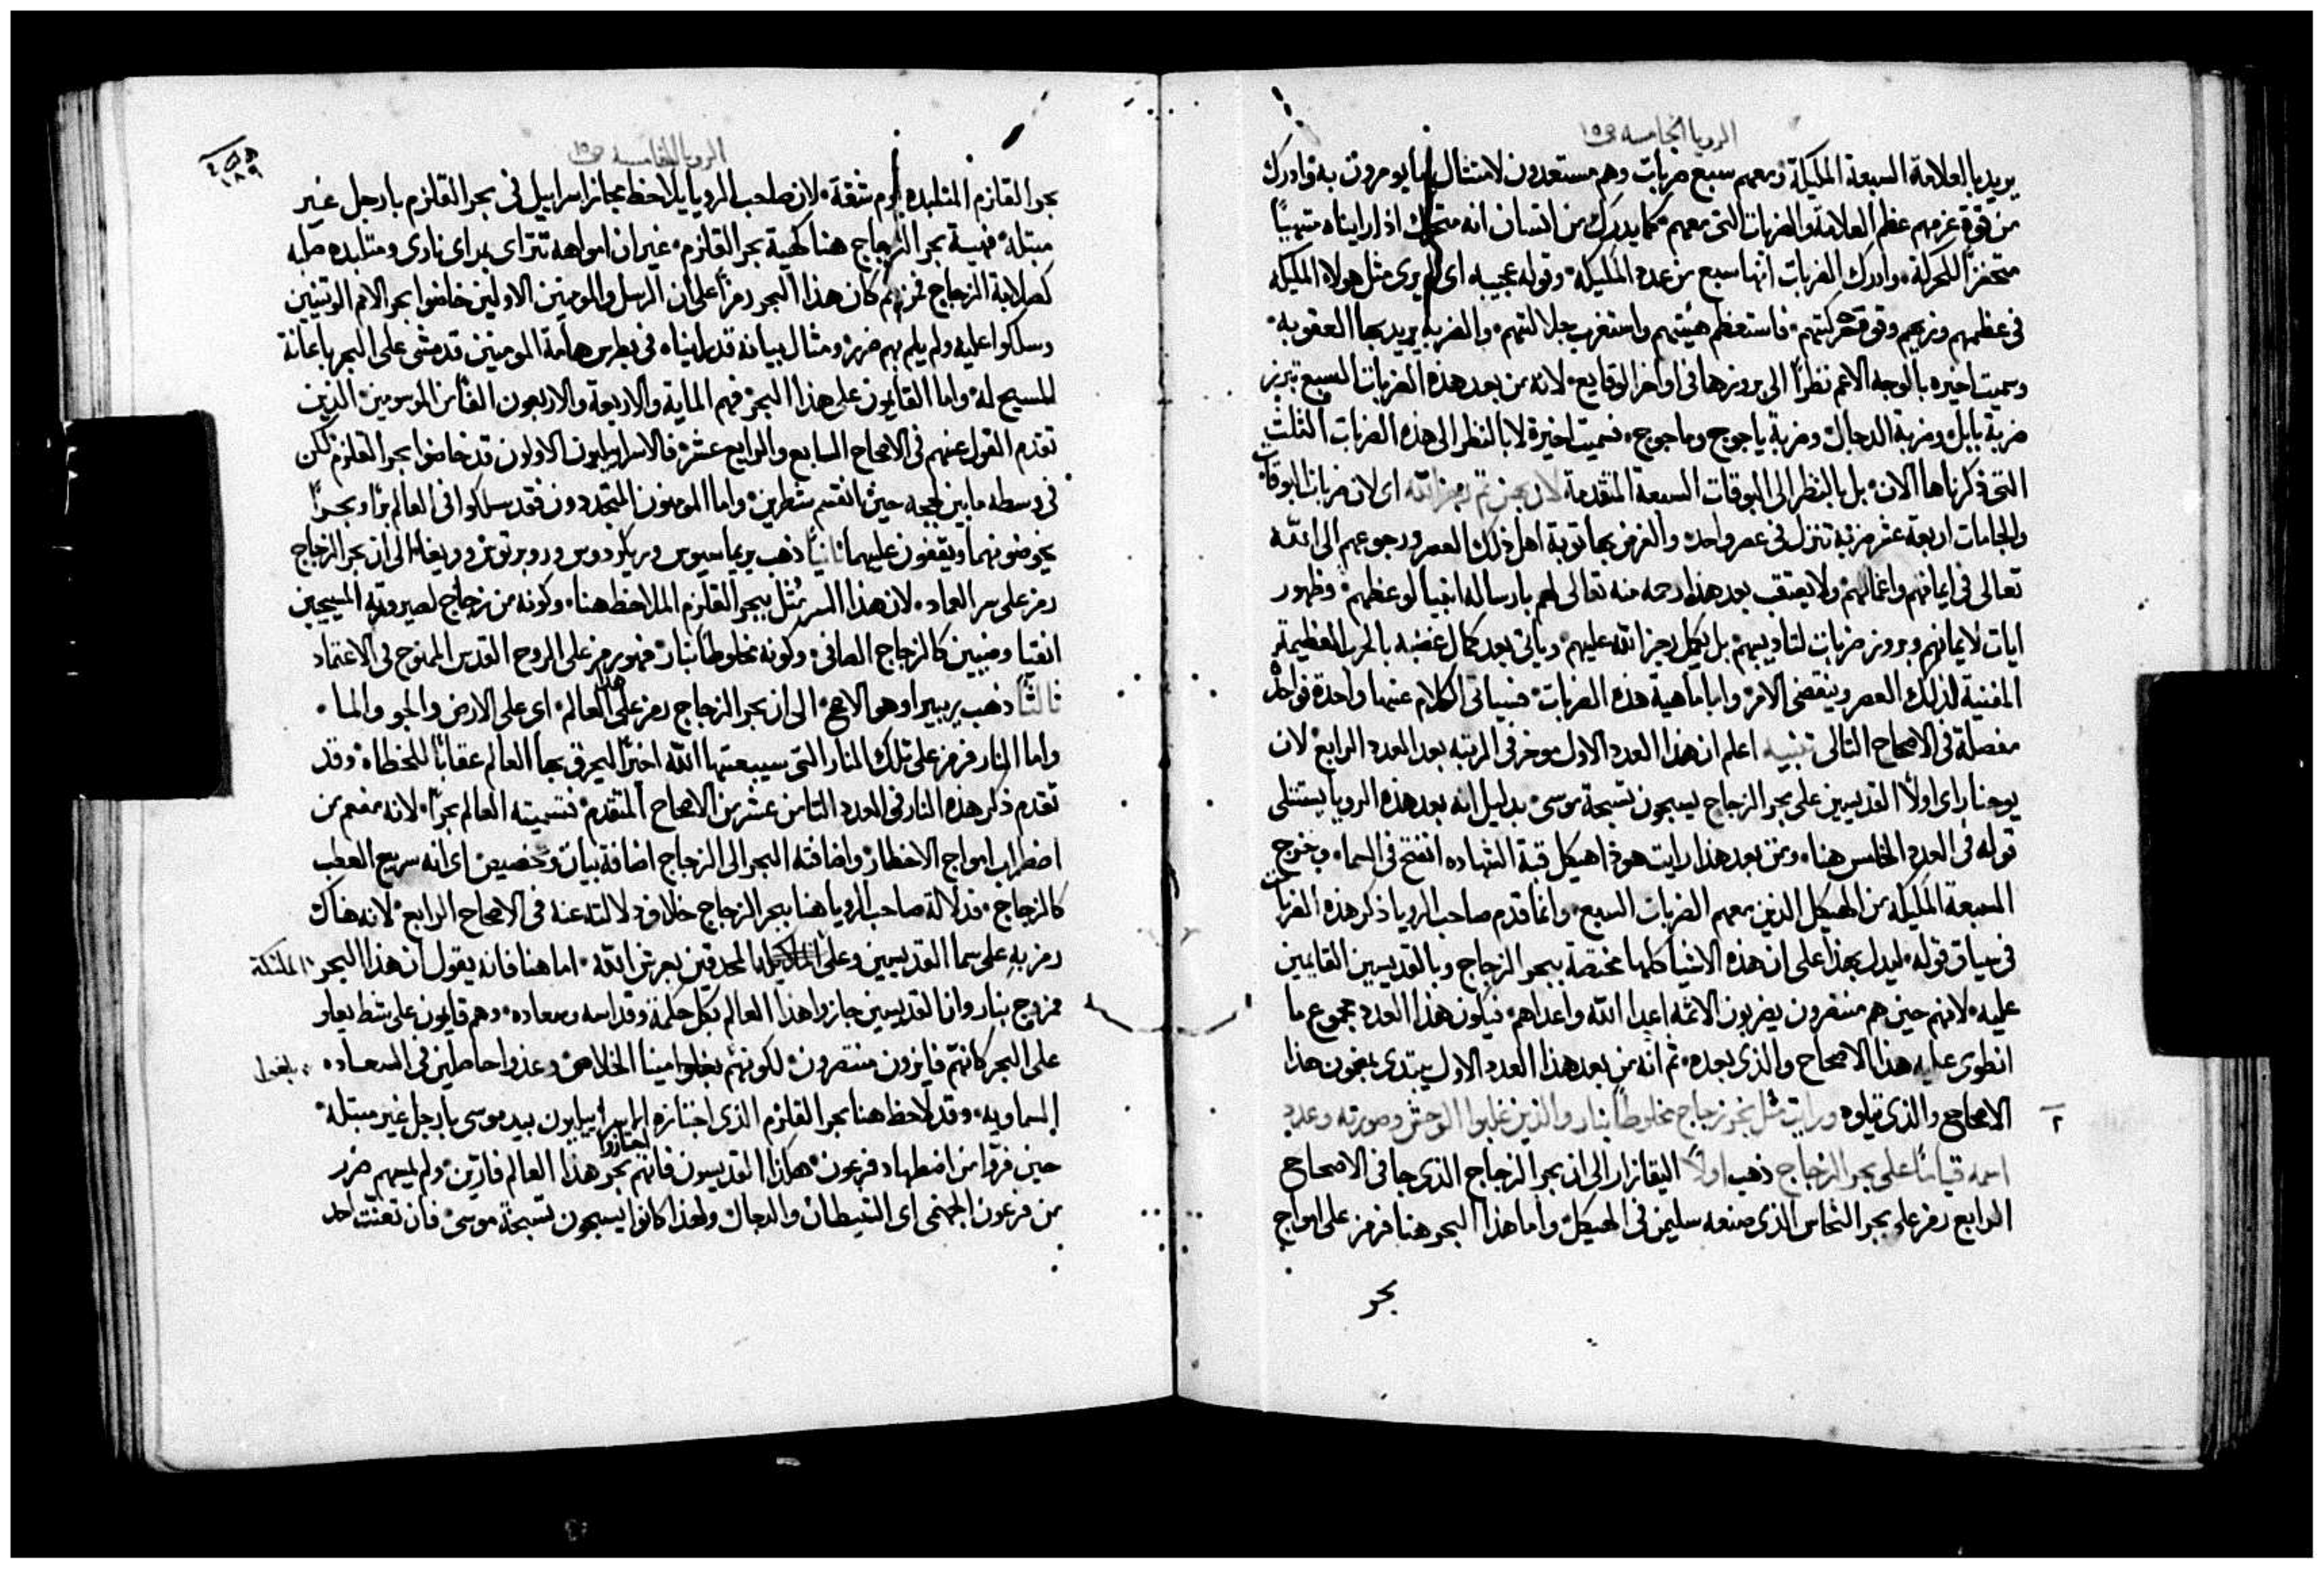 الرويا الخامسه ص١٥
يريد بالعلامة السبعة المليكة ومعهم سبع ضربات وهم مستعدون لامتثال ما يومرون به وادرك
من قوة عزمهم عظم العلامة والضربات التي معهم كما يدرك من انسان انه متحرك اذا رايناه متهيبًا
متحفزًا للحركة وادرك الضربات انها سبع من عدد المليكة وقوله عجيبه اي لم يرى مثل هولاء المليكة
في عظمهم وزيهم وقوة حركتهم فاستعظم هيئتهم واستغرب جلالتهم والضربة يريد بها العقوبه
وسميت اخيره بالوجه الاعم نظرًا الى بروزها في اواخر الوقايع لانه من بعد هذه الضربات السبع تبرز
ضربة بابل وضربة الدجال وضربة ياجوج وماجوج فسميت اخيرة لا بالنظر الى هذه الضربات الثلث
التي ذكرناها الان بل بالنظر الى البوقات السبعة المتقدمة لان بهن تم رجز الله اي لان ضربات البوقات
والجامات اربعة عشر ضربة تنزل في عصر واحد والغرض بها توبة اهل ذلك العصر ورجوعهم الى الله
تعالى في ايمانهم واعمالهم ولا يعتقب بعد هذا رحمه منه تعالى لهم بارساله انبيا لوعظهم وظهور
ايات لايمانهم وبروز ضربات لتاديبهم بل يكمل رجز الله عليهم وياتي بعد كمال غضبه بالحرب العظيمة
المفنية لذلك العصر وينقضي الامر واما ماهية هذه الضربات فسياتي الكلام عنها واحدة فواحدة
مفصلة في الاصحاح التالي تنبيه اعلم ان هذا العدد الاول موخر في الرتبه بعد العدد الرابع لان
يوحنا راى اولًا القديسين على بحر الزجاج يسبحون تسبحة موسى بدليل انه بعد هذه الرويا يستتلى
قوله في العدد الخامس هنا ومن بعد هذا رايت هوذا هيكل قبة الشهاده انفتح في السما وخرج
السبعة المليكة من الهيكل الذين معهم الضربات السبع وانما قدم صاحب الرويا ذكر هذه الضربات
في سياق قوله ليدل بهذا على ان هذه الاشيا كلها مختصة ببحر الزجاج وبالقديسين القايمين
عليه لانهم حين هم منتصرون يضربون الاثمه اعدا الله واعداهم فيكون هذا العدد مجموع ما
انطوى عليه هذا الاصحاح والذي بعده ثم انه من بعد هذا العدد الاول يبتدي بمضمون هذا
٢ الاصحاح والذي يتلوه ورايت مثل بحر زجاج مخلوطًا بنار والذين غلبوا الوحش وصورته وعدد
اسمه قيامًا على بحر الزجاج ذهب اولًا اليقازار الى ان بحر الزجاج الذي جا في الاصحاح
الرابع رمز على بحر النحاس الذي صنعه سليمن في الهيكل واما هذا البحر هنا فرمز على امواج
بحر
الرويا الخامسه ص١٥
١٨٩
بحر القلزم المتلبده يوم شقه لان صاحب الرويا يلاحظ مجاز اسراييل في بحر القلزم بارجل غير
مبتله فهيية بحر الزجاج هنا كهية بحر القلزم غير ان امواهه تتراى بمراى نارى ومتلبده صلبه
كصلابة الزجاج فمن ثم كان هذا البحر رمزًا على ان الرسل والمومنين الاولين خاضوا بحر الامم الوثنيين
وسلكوا عليه ولم يلم بهم ضرر ومثال بيانه قد راينا في بطرس هامة المومنين قد مشى على البحر باعانة
المسيح له واما القايمون على هذا البحر فهم الماية والاربعة والاربعون الفًا من الموسومين الذين
تقدم القول عنهم في الاصحاح السابع والرابع عشر فالاسراييليون الاولون قد خاضوا بحر القلزم لكن
في وسطه ما بين لججه حين انقسم شطرين واما المومنون المتجددون فقد سلكوا في العالم برًا وبحرًا
يخوضونهما ويقفون عليهما ثانيًا ذهب بريماسيوس وريكاردوس وروبرتوس وريغا الى ان بحر الزجاج
رمز على سر العماد لان هذا السر مُثل ببحر القلزم الملاحظ هنا وكونه من زجاج لصيرورته المسيحيين
انقيا ومضيين كالزجاج الصافي وكونه مخلوطًا بنار فهو رمز على الروح القدس الممنوح في الاعتماد
ثالثًا ذهب بربييرا وهو الاصح الى ان بحر الزجاج رمز على هذا العالم اي على الارض والجو والما
واما النار فرمز على تلك النار التي سيبعثها الله اخيرًا ليحرق بها العالم عقابًا للخطاه وقد
تقدم ذكر هذه النار في العدد الثامن عشر من الاصحاح المتقدم فتسميته العالم بحرًا لانه مفعم من
اضطراب امواج الاخطار واضافته البحر الى الزجاج اضافة بيان وتخصيص اي انه سريع العطب
كالزجاج فدلالة صاحب الرويا هنا ببحر الزجاج خلاف دلالته عنه في الاصحاح الرابع لانه هناك
رمز به على سما القديسين وعلى الملئكة المحدقين بعرش الله اما هنا فانه يقول ان هذا البحر
ممزوج بنار وان القديسين جازوا هذا العالم بكل حكمة وقداسه وسعاده وهم قايمون على شط يعلو
على البحر كانهم فايزون منتصرون لكونهم بلغوا مينا الخلاص وغذوا حاصلين في السعاده
السماويه وقد لاحظ هنا بحر القلزم الذي اجتازه الاسراييليون بيد موسى بارجل غير مبتلة
حين فروا من اضطهاد فرعون هكذا القديسون فانهم اجتازوا بحر هذا العالم فارّين ولم يمسهم ضرر
من فرعون الجهنمي اي الشيطان والدجال ولهذا كانوا يسبحون تسبحة موسى فان تعنت احد